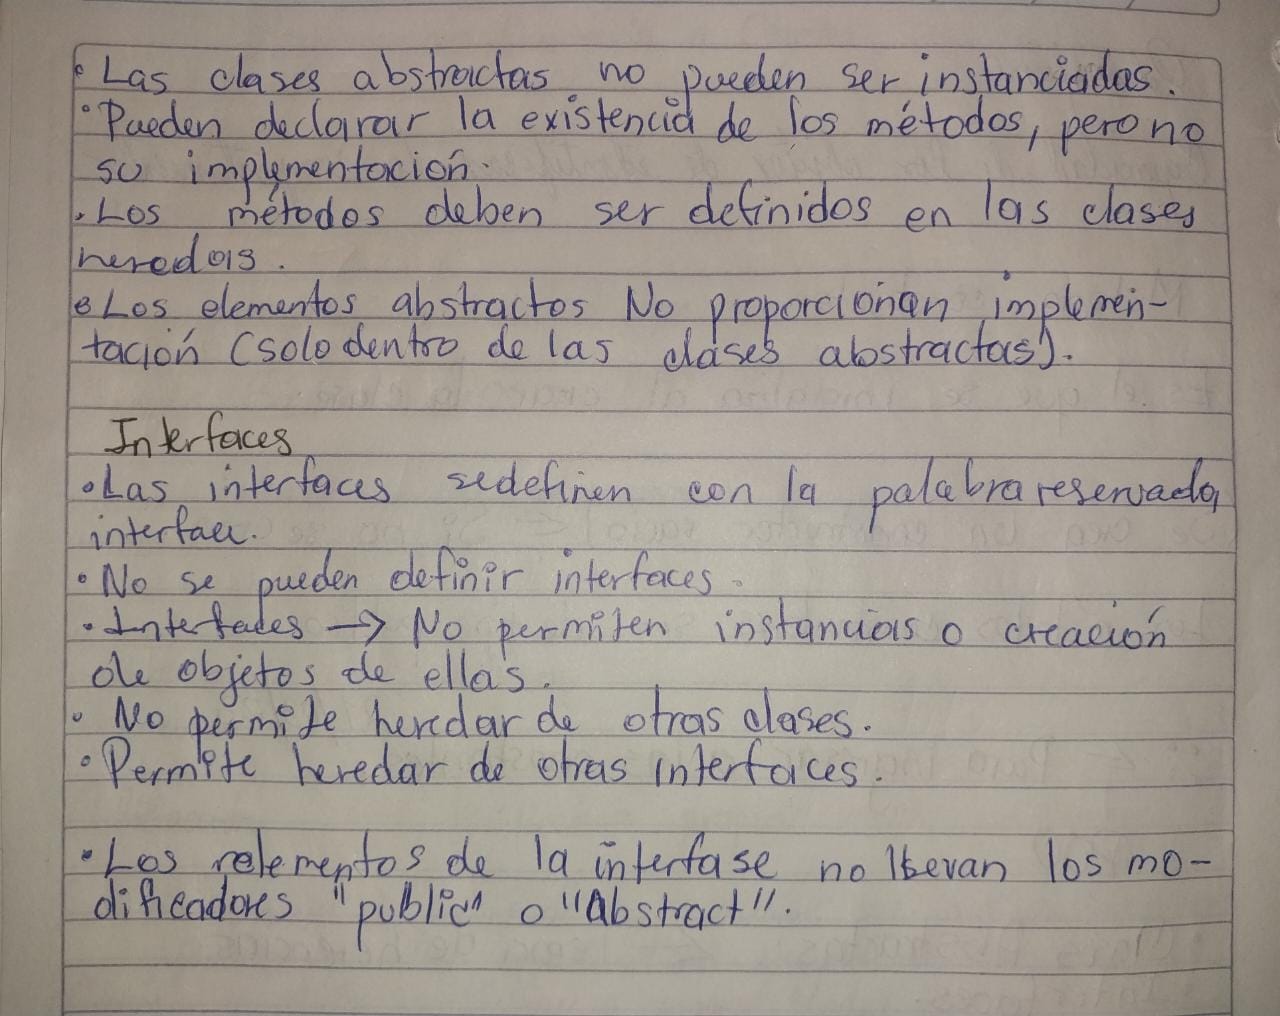 • Las clases abstractas no pueden ser instanciadas.
• Pueden declarar la existencia de los métodos, pero no
su implementación.
• Los métodos deben ser definidos en las clases
heredas.
• Los elementos abstractos No proporcionan implemen-
tación (solo dentro de las clases abstractas).
Interfaces
• Las interfaces se definen con la palabra reservada
interface.
• No se pueden definir interfaces.
• Interfaces → No permiten instancias o creación
de objetos de ellas.
• No permite heredar de otras clases.
• Permite heredar de otras interfaces.
• Los relementos de la interfase no llevan los mo-
dificadores "public" o "Abstract".